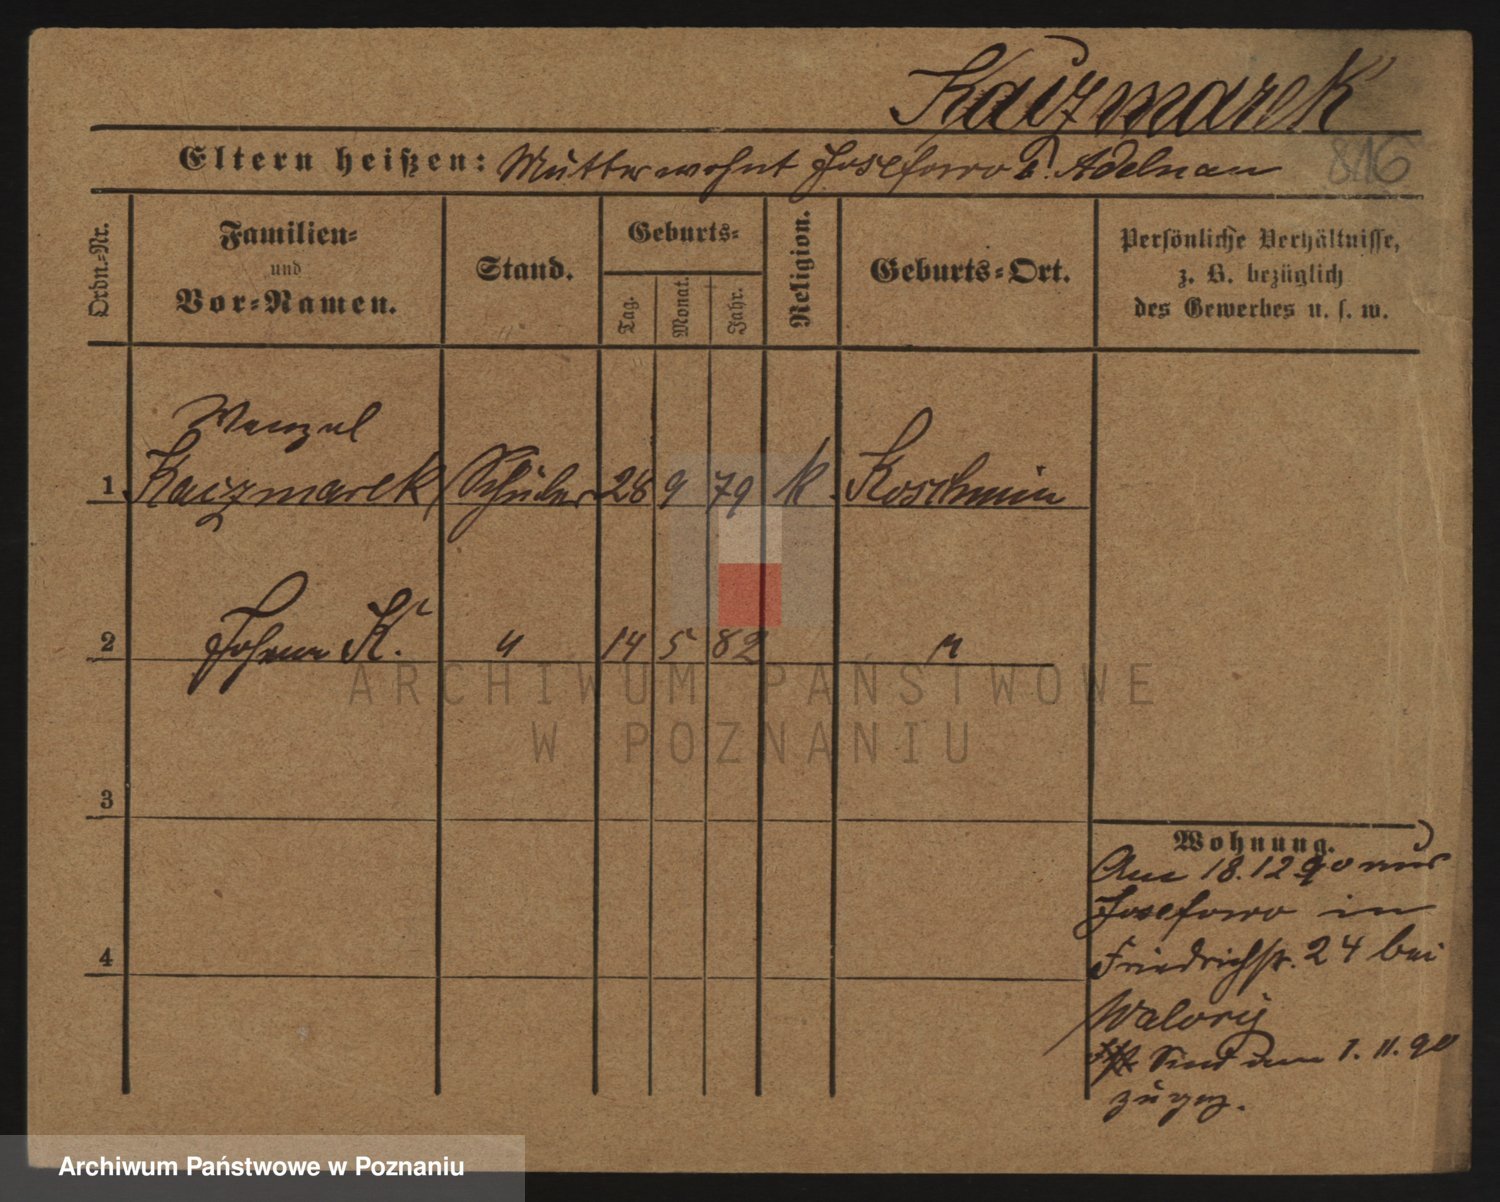 Kaczmarek
Eltern heißen: Mutter wohnt Josefowo b. Adelnau
816
Ordn.-Nr.
Familien-
und
Vor-Namen.
Stand.
Geburts-
Tag.
Monat.
Jahr.
Religion.
Geburts-Ort.
Persönliche Verhältnisse,
z. B. bezüglich
des Gewerbes u. s. w.
Wenzel
1 Kaczmarek Schüler 28 9 79 k. Koschmin
2 Johann K. " 14 5 82 "
3
4
Wohnung.
Am 18.12.90 aus
Josefowo in
Friedrichstr. 24 bei
Walory
Sind am 1. 11. 90
zugez.
ARCHIWUM PAŃSTWOWE
W POZNANIU
Archiwum Państwowe w Poznaniu